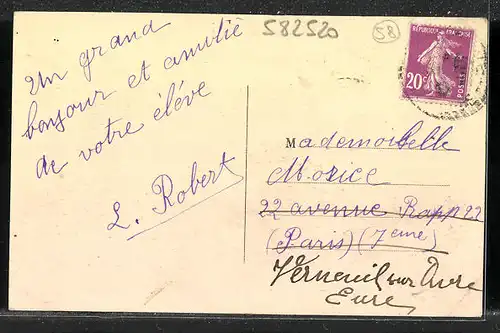 582520
58
RÉPUBLIQUE FRANÇAISE
20c
POSTES
Un grand
bonjour et amitié
de votre élève
L. Robert
Mademoiselle
Morice
22 avenue Rapp 22
(Paris) (7eme)
Verneuil sur Avre
Eure